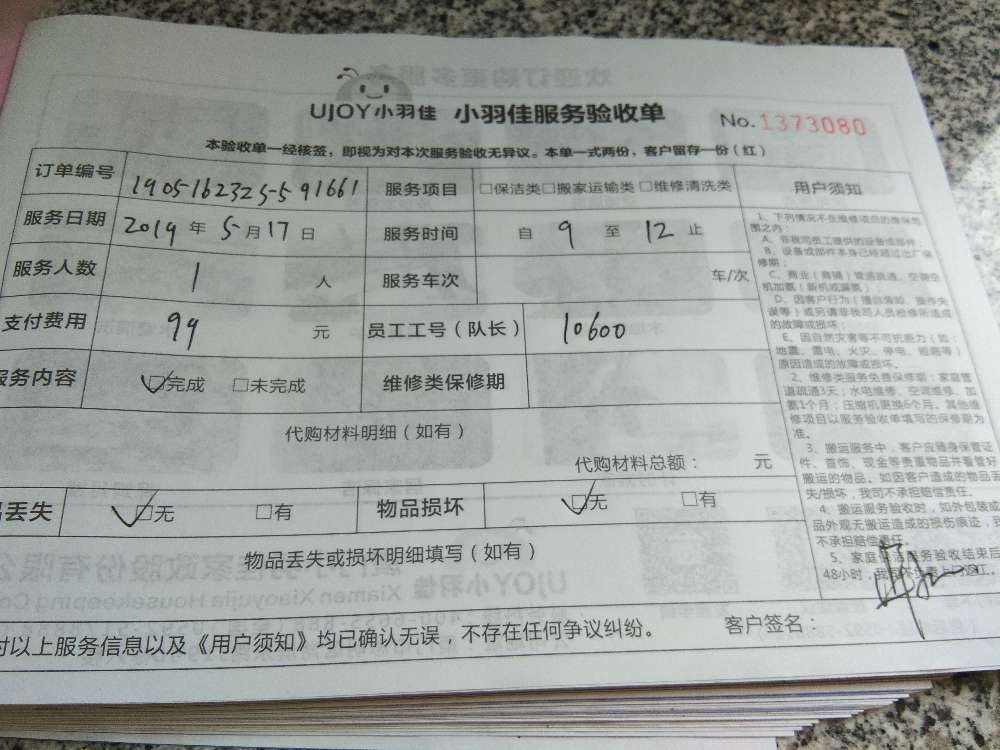 UJOY小羽佳 小羽佳服务验收单 No.1373080
本验收单一经核签，即视为对本次服务验收无异议。本单一式两份，客户留存一份（红）
订单编号 1905162325591661 服务项目 □保洁类□搬家运输类□维修清洗类 用户须知
服务日期 2019年5月17日 服务时间 自9至12止
服务人数 1人 服务车次 车/次
支付费用 99元 员工工号（队长） 10600
服务内容 ☑完成 □未完成 维修类保修期
代购材料明细（如有）
代购材料总额： 元
丢失 ☑无 □有 物品损坏 ☑无 □有
物品丢失或损坏明细填写（如有）
对以上服务信息以及《用户须知》均已确认无误，不存在任何争议纠纷。 客户签名：
1、下列情况不在维修项目的维保范
围之内：
A、非我司员工提供的设备或部件；
B、设备或部件本身已经超过出厂保
修期；
C、商业（商铺）管道疏通、空调空
机加氟（新机或漏氟）；
D、因客户行为（擅自装卸、操作失
误等）或另请非我司人员检修所造成
的故障或损坏；
E、因自然灾害等不可抗能力（如：
地震、雷电、火灾、停电、粗癌等）
原因造成的故障或损坏。
2、维修类服务免费保修期：家庭管
道疏通3天；水电维修、空调维修、加
氟1个月；压缩机更换6个月。其他维
修项目以服务验收单填写的保修期为
准。
3、搬运服务中，客户应随身保管证
件、首饰、现金等贵重物品并看管好
搬运的物品。如因客户造成的物品丢
失/损坏，我司不承担赔偿责任。
4、搬运服务验收时，如外包装或
品外观无搬运造成的损伤痕迹，
不承担赔偿责任。
5、家庭保洁服务验收结束后
48小时，